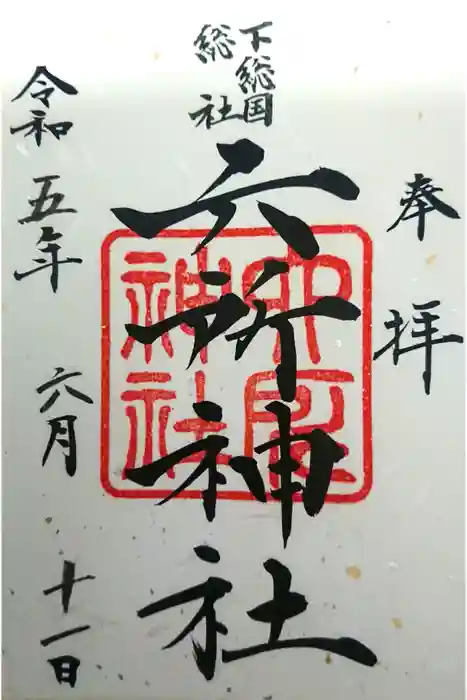 奉拝
下総国
総社
六所神社
六所
神社
令和五年六月十一日